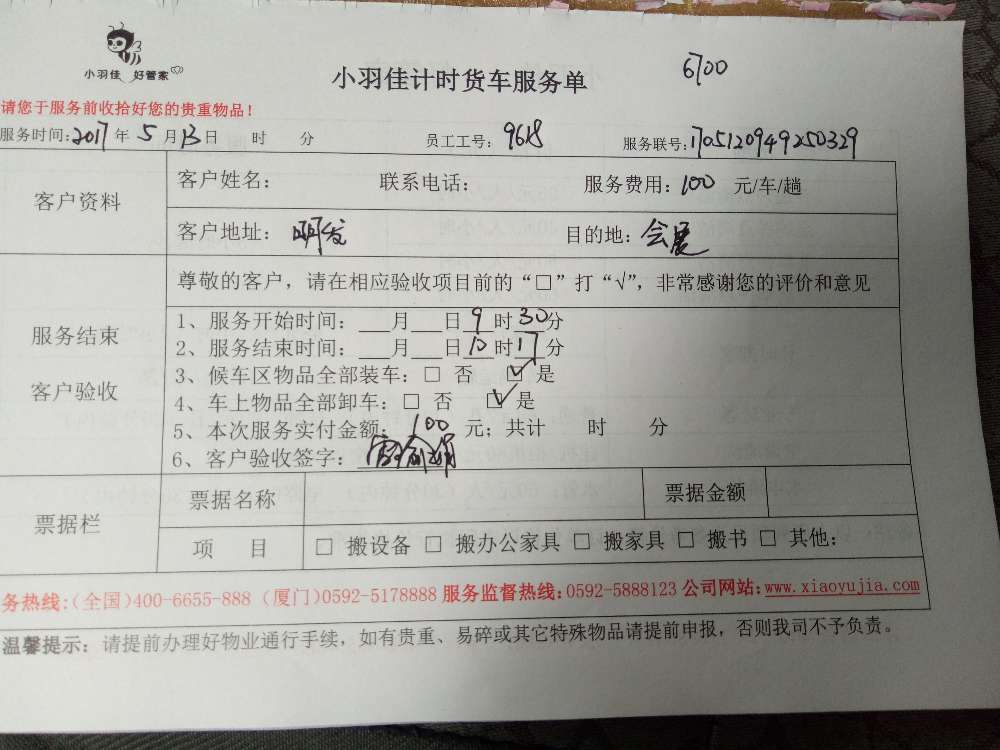 小羽佳 好管家
小羽佳计时货车服务单
6700
请您于服务前收拾好您的贵重物品！
服务时间:2017年5月13日 时 分 员工工号：9618 服务联号:170512094925032​9
客户资料
客户姓名： 联系电话： 服务费用：100 元/车/趟
客户地址：明发 目的地：会展
服务结束
客户验收
尊敬的客户，请在相应验收项目前的“□”打“√”，非常感谢您的评价和意见
1、服务开始时间：___月___日9时30分
2、服务结束时间：___月___日10时17分
3、候车区物品全部装车：□ 否 ☑ 是
4、车上物品全部卸车：□ 否 ☑ 是
5、本次服务实付金额：100 元；共计 时 分
6、客户验收签字：
票据栏
票据名称 票据金额
项 目 □ 搬设备 □ 搬办公家具 □ 搬家具 □ 搬书 □ 其他：
务热线:(全国)400-6655-888 (厦门)0592-5178888 服务监督热线:0592-5888123 公司网站:www.xiaoyujia.com
温馨提示：请提前办理好物业通行手续，如有贵重、易碎或其它特殊物品请提前申报，否则我司不予负责。